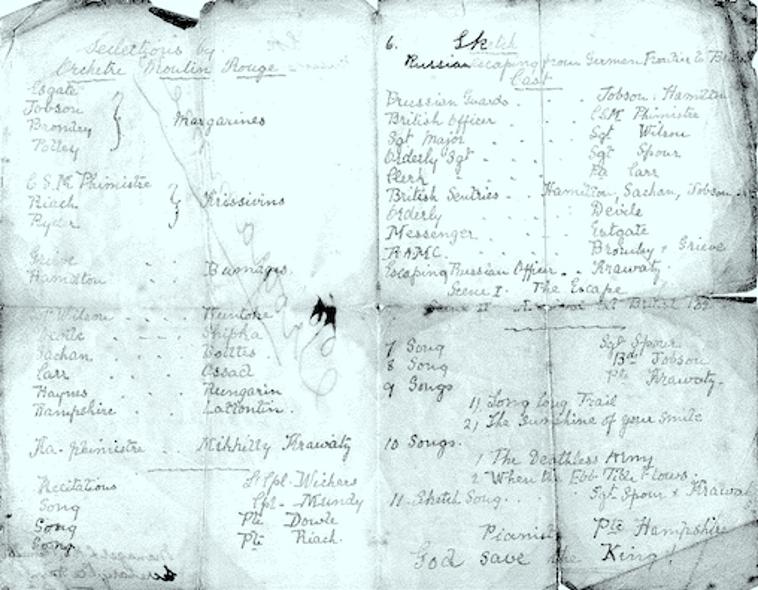 Selections by
Orchetre Moulin Rouge
Esgate
Tobson
Bromley
Potley
Margarines
C S.M. Phimistre
Riach
Ryder
Krissivins
Grieve
Hamilton
Bannages.
Wilson . . Runtoke
Devile . . Shipka
Sachan . . Bottes
Carr . . Ossad
Haynes . . Hungarin
Hampshire . . Lattontin.
Phimistre . . Mikhilly Krawaty
Recitations L/Cpl. Wickers
Song Cpl- Mundy
Song Pte Dowle
Song Pte Riach.
6. Sketch
Russian escaping from German Frontier to
Cast
Prussian Guards . . Jobson, Hamilton
British Officer . . CSM Phimistre
Sgt Major . . Sgt Wilson
Orderly Sgt . . Sgt Spour
Clerk . . Pte Carr
British Sentries . . Hamilton, Sachan, Jobson
Orderly . . Devile
Messenger . . Estgate
R.A.M.C. . . Bromley & Grieve
Escaping Russian Officer . . Krawaty
Scene I. The Escape
Scene II Arrival at British
7 Song Sgt Spour
8 Song Bdr Jobson
9 Songs Pte Krawaty.
1) Long long Trail
2) The Sunshine of your Smile
10 Songs.
1 The Deathless Army
2 When the Ebb Tide Flows.
11. Sketch Song . . Sgt Spour & Krawaty
Pianist Pte Hampshire
God save the King!